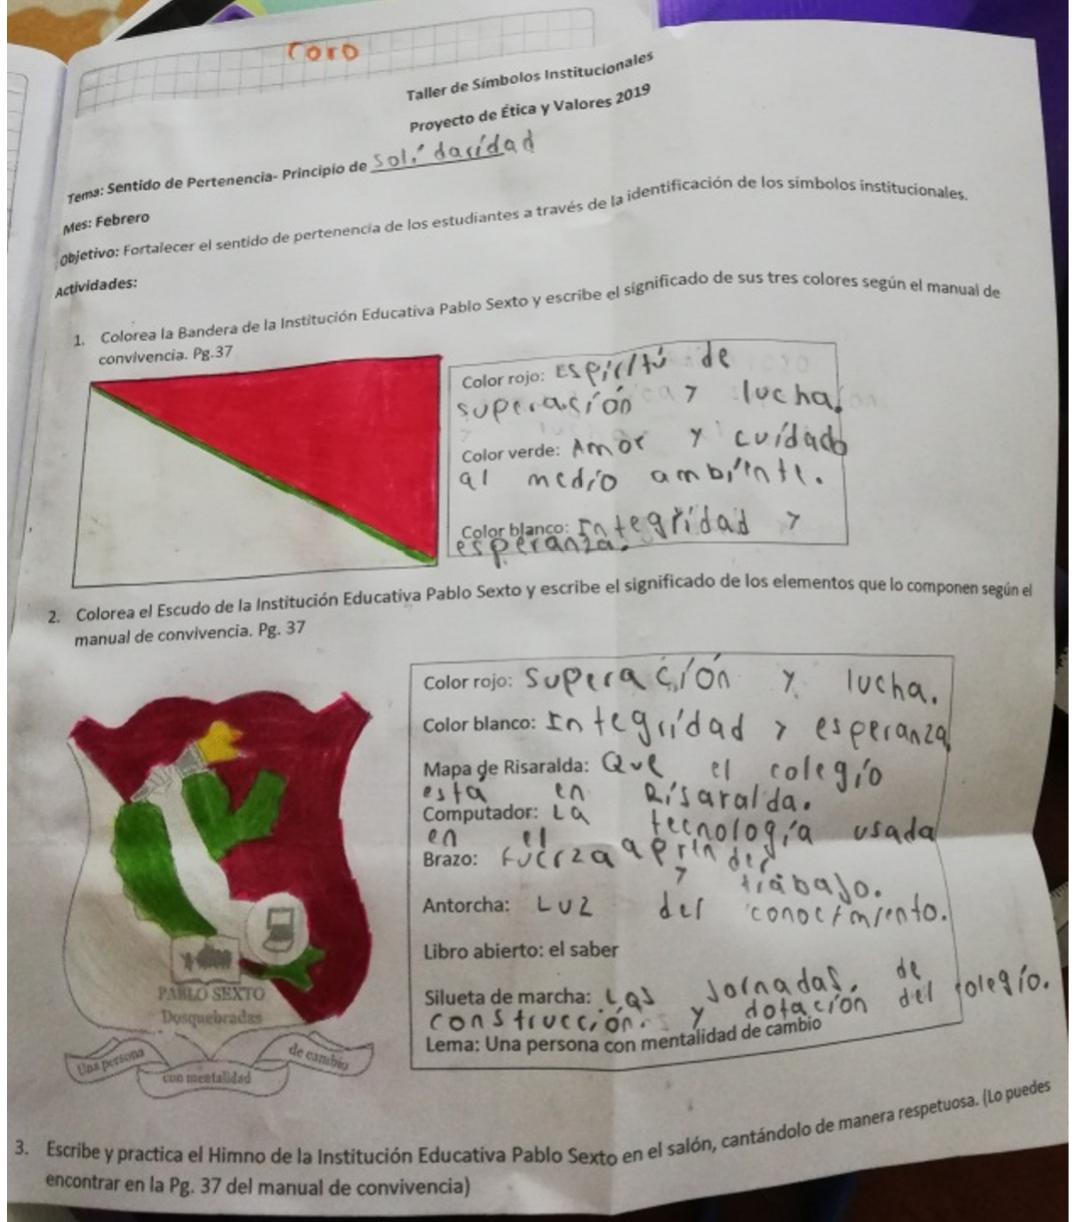 Coro
Taller de Símbolos Institucionales
Proyecto de Ética y Valores 2019
Tema: Sentido de Pertenencia- Principio de Solidaridad
Mes: Febrero
Objetivo: Fortalecer el sentido de pertenencia de los estudiantes a través de la identificación de los símbolos institucionales.
Actividades:
1. Colorea la Bandera de la Institución Educativa Pablo Sexto y escribe el significado de sus tres colores según el manual de
convivencia. Pg.37
Color rojo: Espíritu de
superación y lucha.
Color verde: Amor y cuidado
al medio ambiente.
Color blanco: Integridad y
esperanza.
2. Colorea el Escudo de la Institución Educativa Pablo Sexto y escribe el significado de los elementos que lo componen según el
manual de convivencia. Pg. 37
Color rojo: Superación y lucha.
Color blanco: Integridad y esperanza
Mapa de Risaralda: Que el colegio
esta en Risaralda.
Computador: La tecnología usada
en el aprinder
Brazo: Fuerza y trabajo.
Antorcha: Luz del conocimiento.
Libro abierto: el saber
Silueta de marcha: Las Jornadas, de
construcción y dotación del colegio.
Lema: Una persona con mentalidad de cambio
PABLO SEXTO
Dosquebradas
Una persona
con mentalidad
de cambio
3. Escribe y practica el Himno de la Institución Educativa Pablo Sexto en el salón, cantándolo de manera respetuosa. (Lo puedes
encontrar en la Pg. 37 del manual de convivencia)